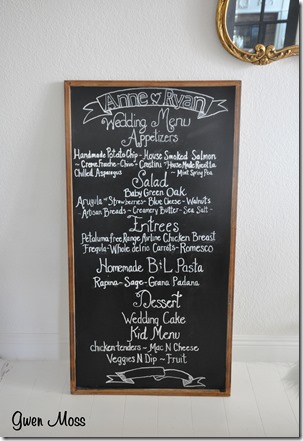 Anne ♥ Ryan
Wedding Menu
Appetizers
Handmade Potato Chip - House Smoked Salmon
~ Creme Fraiche - Chive ~ Crostini ~ House Made Ricotta
Chilled Asparagus ~ Mint Spring Pea
Salad
Baby Green Oak
Arugula ~ Strawberries ~ Blue Cheese - Walnuts
Artisan Breads ~ Creamery Butter ~ Sea Salt
Entrees
Petaluma free Range Airline Chicken Breast
Fregula ~ Whole delino Carrots - Romesco
Homemade BiL Pasta
Rapina ~ Sage ~ Grana Padana
Dessert
Wedding Cake
Kid Menu
chicken tenders ~ Mac N Cheese
Veggies N Dip ~ Fruit
Gwen Moss